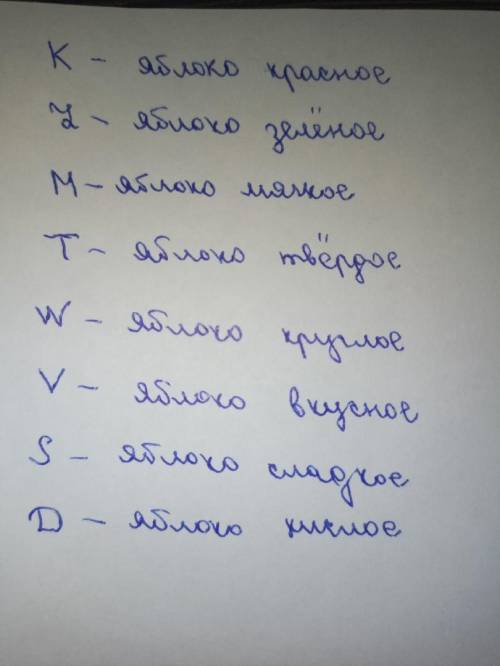 K - яблоко красное
Z - яблоко зелёное
M - яблоко мягкое
T - яблоко твёрдое
W - яблоко круглое
V - яблоко вкусное
S - яблоко сладкое
D - яблоко кислое